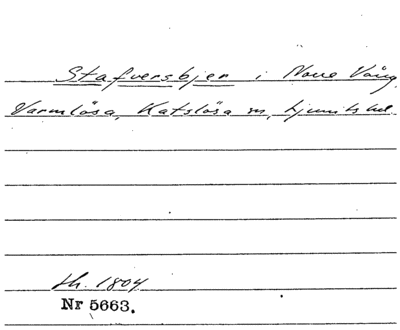 Stafversbjer i Norre Vång,
Varmlösa, Katslösa sn, Ljunits hd.
sh. 1804
Nr 5663.